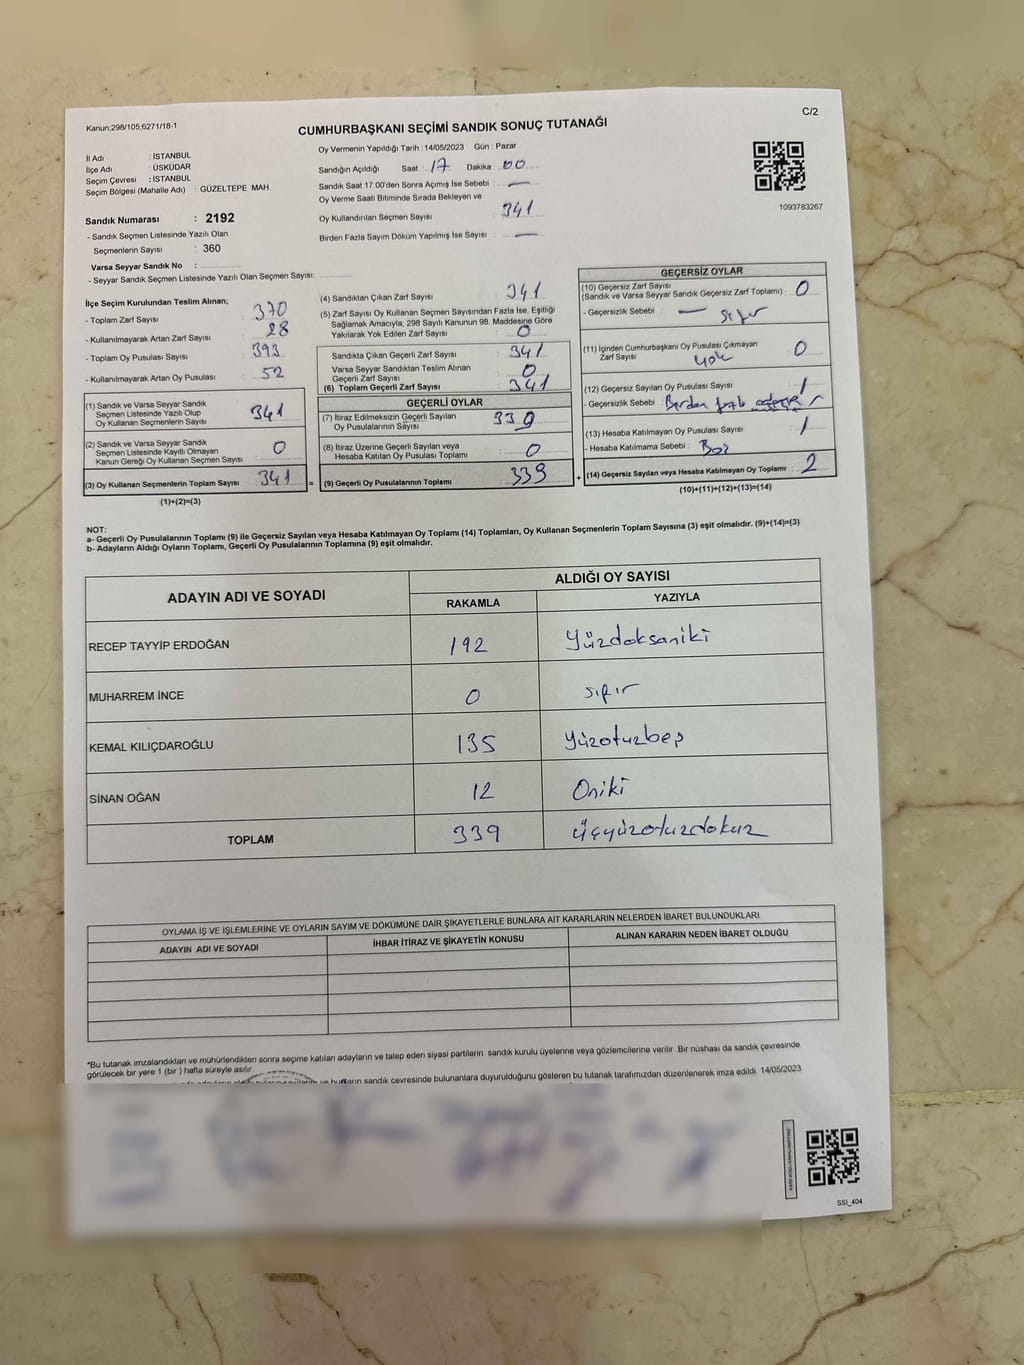 Kanun;298/105;6271/18-1
C/2
CUMHURBAŞKANI SEÇİMİ SANDIK SONUÇ TUTANAĞI
İl Adı : İSTANBUL
İlçe Adı : ÜSKÜDAR
Seçim Çevresi : İSTANBUL
Seçim Bölgesi (Mahalle Adı) : GÜZELTEPE MAH.
Sandık Numarası : 2192
- Sandık Seçmen Listesinde Yazılı Olan
Seçmenlerin Sayısı : 360
Varsa Seyyar Sandık No :
- Seyyar Sandık Seçmen Listesinde Yazılı Olan Seçmen Sayısı:
Oy Vermenin Yapıldığı Tarih : 14/05/2023 Gün : Pazar
Sandığın Açıldığı Saat : 17 Dakika : 00
Sandık Saat 17:00'den Sonra Açımış İse Sebebi : —
Oy Verme Saati Bitiminde Sırada Bekleyen ve
Oy Kullandırılan Seçmen Sayısı : 341
Birden Fazla Sayım Döküm Yapılmış İse Sayısı : —
1093783267
İlçe Seçim Kurulundan Teslim Alınan;
- Toplam Zarf Sayısı : 370
- Kullanılmayarak Artan Zarf Sayısı : 28
- Toplam Oy Pusulası Sayısı : 393
- Kullanılmayarak Artan Oy Pusulası : 52
(1) Sandık ve Varsa Seyyar Sandık
Seçmen Listesinde Yazılı Olup
Oy Kullanan Seçmenlerin Sayısı : 341
(2) Sandık ve Varsa Seyyar Sandık
Seçmen Listesinde Kayıtlı Olmayan
Kanun Gereği Oy Kullanan Seçmen Sayısı : 0
(3) Oy Kullanan Seçmenlerin Toplam Sayısı : 341 =
(1)+(2)=(3)
(4) Sandıktan Çıkan Zarf Sayısı : 341
(5) Zarf Sayısı Oy Kullanan Seçmen Sayısından Fazla İse, Eşitliği
Sağlamak Amacıyla, 298 Sayılı Kanunun 98. Maddesine Göre
Yakılarak Yok Edilen Zarf Sayısı : 0
Sandıkta Çıkan Geçerli Zarf Sayısı : 341
Varsa Seyyar Sandıktan Teslim Alınan
Geçerli Zarf Sayısı : 0
(6) Toplam Geçerli Zarf Sayısı : 341
GEÇERLİ OYLAR
(7) İtiraz Edilmeksizin Geçerli Sayılan
Oy Pusulalarının Sayısı : 339
(8) İtiraz Üzerine Geçerli Sayılan veya
Hesaba Katılan Oy Pusulası Toplamı : 0
(9) Geçerli Oy Pusulalarının Toplamı : 339 +
GEÇERSİZ OYLAR
(10) Geçersiz Zarf Sayısı
(Sandık ve Varsa Seyyar Sandık Geçersiz Zarf Toplamı) : 0
- Geçersizlik Sebebi : — sıfır
(11) İçinden Cumhurbaşkanı Oy Pusulası Çıkmayan
Zarf Sayısı : 0
yok
(12) Geçersiz Sayılan Oy Pusulası Sayısı : 1
- Geçersizlik Sebebi : Birden fazla
(13) Hesaba Katılmayan Oy Pusulası Sayısı : 1
- Hesaba Katılmama Sebebi : Boş
(14) Geçersiz Sayılan veya Hesaba Katılmayan Oy Toplamı : 2
(10)+(11)+(12)+(13)=(14)
NOT:
a- Geçerli Oy Pusulalarının Toplamı (9) ile Geçersiz Sayılan veya Hesaba Katılmayan Oy Toplamı (14) Toplamları, Oy Kullanan Seçmenlerin Toplam Sayısına (3) eşit olmalıdır. (9)+(14)=(3)
b- Adayların Aldığı Oyların Toplamı, Geçerli Oy Pusulalarının Toplamına (9) eşit olmalıdır.
ADAYIN ADI VE SOYADI
ALDIĞI OY SAYISI
RAKAMLA YAZIYLA
RECEP TAYYİP ERDOĞAN 192 Yüzdoksaniki
MUHARREM İNCE 0 sıfır
KEMAL KILIÇDAROĞLU 135 Yüzotuzbeş
SİNAN OĞAN 12 Oniki
TOPLAM 339 Üçyüzotuzdokuz
OYLAMA İŞ VE İŞLEMLERİNE VE OYLARIN SAYIM VE DÖKÜMÜNE DAİR ŞİKAYETLERLE BUNLARA AİT KARARLARIN NELERDEN İBARET BULUNDUKLARI
ADAYIN ADI VE SOYADI İHBAR İTİRAZ VE ŞİKAYETİN KONUSU ALINAN KARARIN NEDEN İBARET OLDUĞU
*Bu tutanak imzalandıktan ve mühürlendikten sonra seçime katılan adayların ve talep eden siyasi partilerin sandık kurulu üyelerine veya gözlemcilerine verilir. Bir nüshası da sandık çevresinde
görülecek bir yere 1 (bir ) hafta süreyle asılır.
ve bunların sandık çevresinde bulunanlara duyurulduğunu gösteren bu tutanak tarafımızdan düzenlenerek imza edildi. 14/05/2023
SSI_404